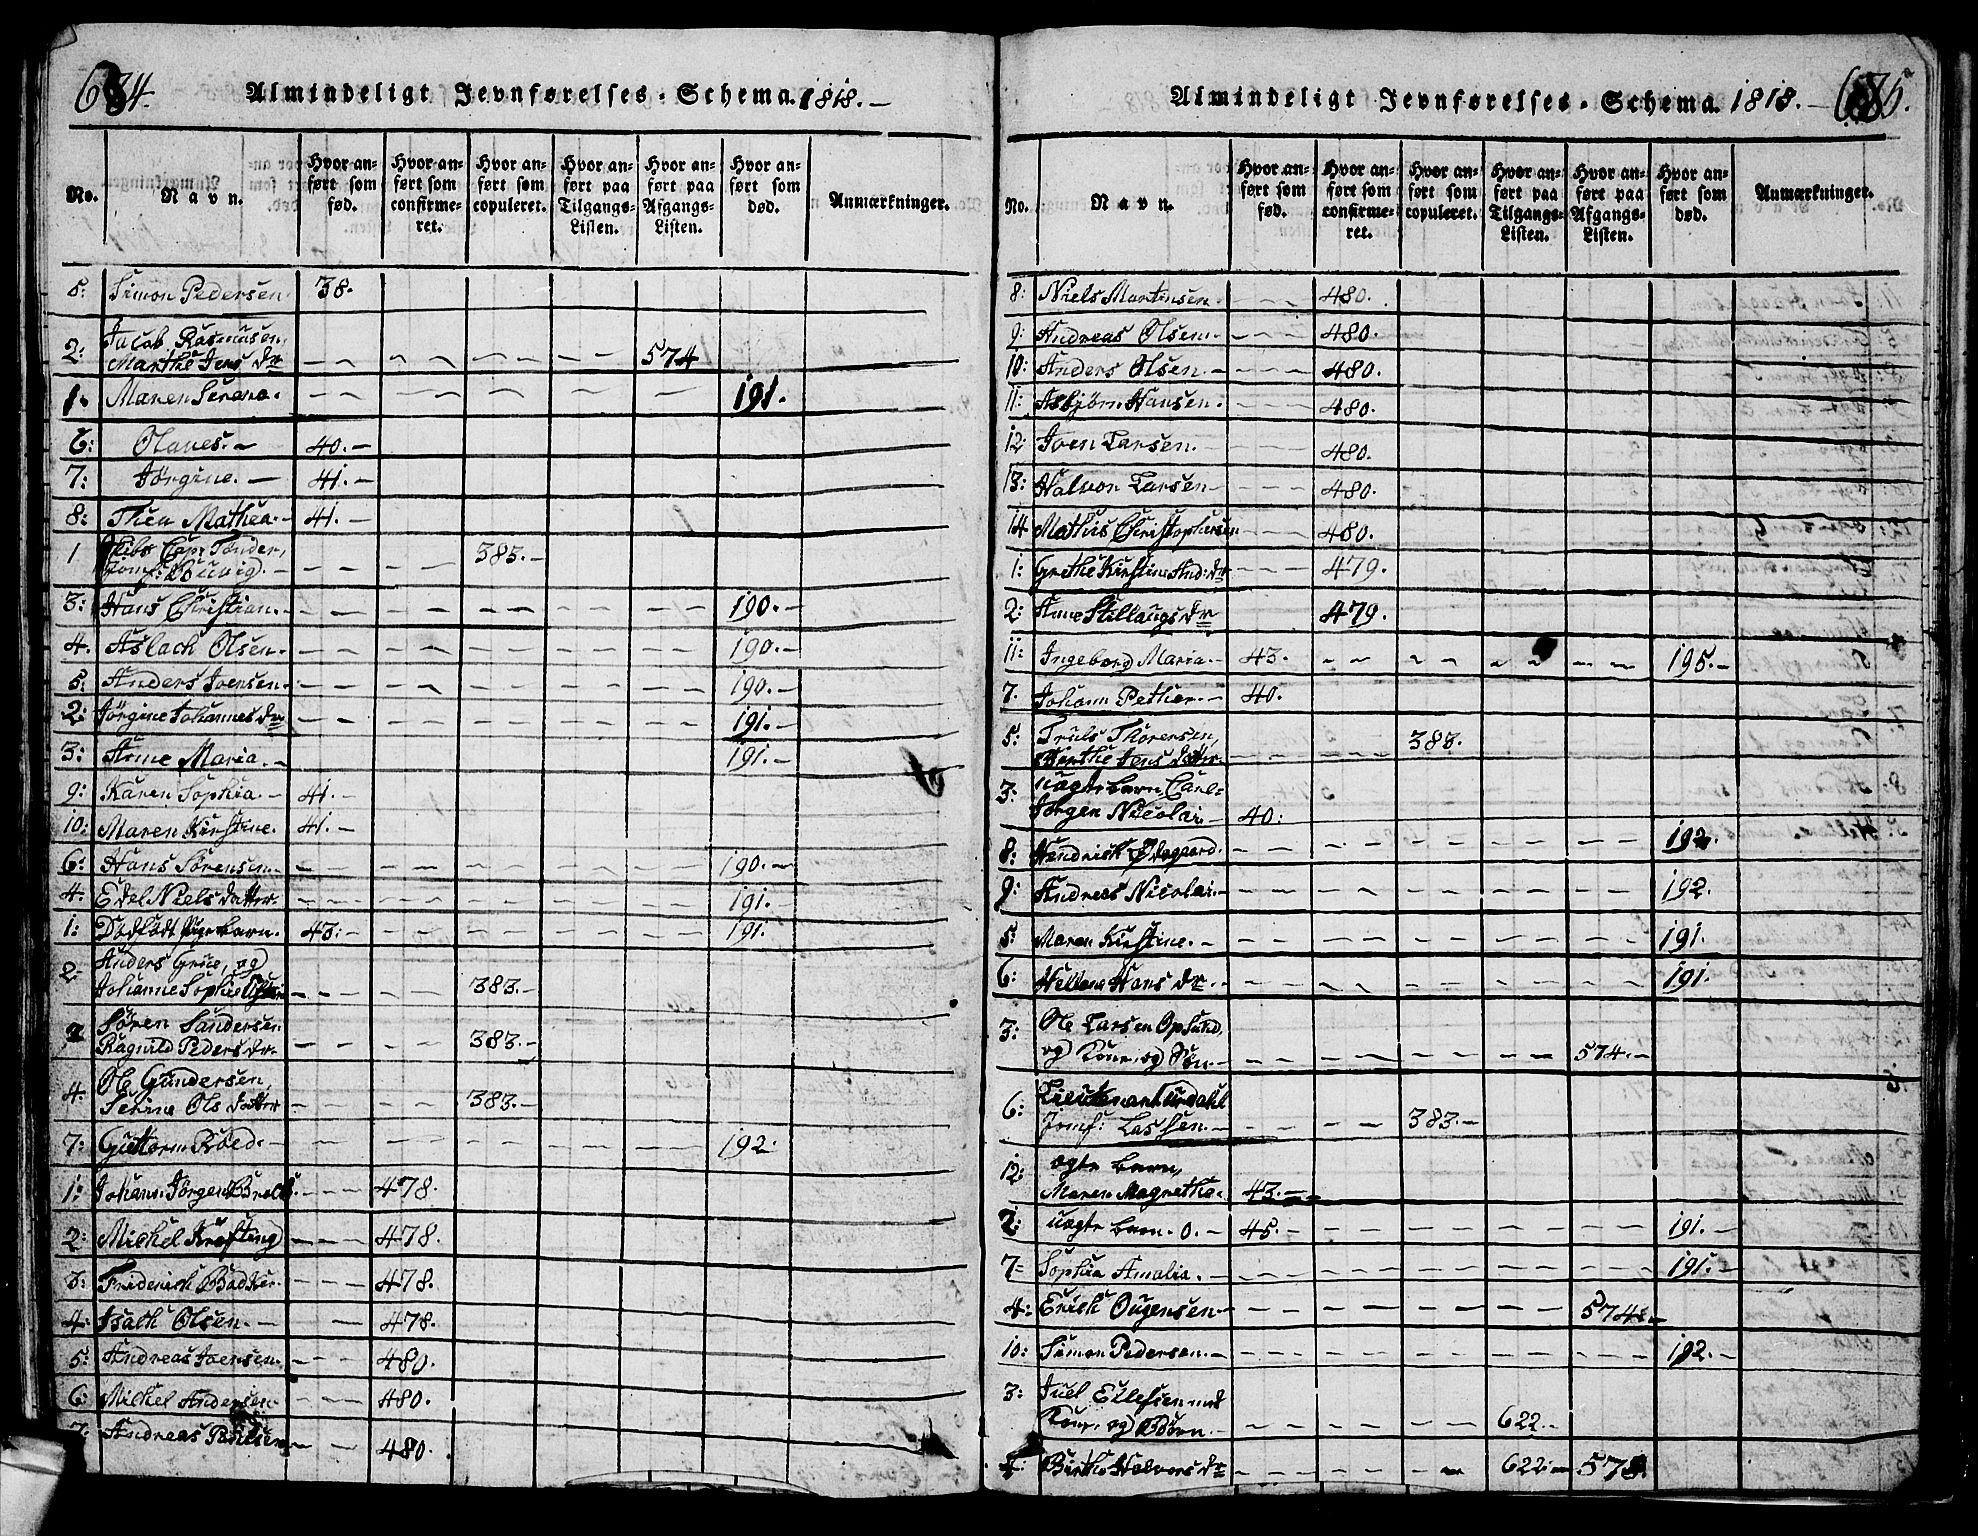 684.
Almindeligt Jevnførelses-Schema. 1818.
No.
Navn.
Hvor anført som født.
Hvor anført som confirmeret.
Hvor anført som copuleret.
Hvor anført paa Tilgangs-Listen.
Hvor anført paa Afgangs-Listen.
Hvor anført som død.
Anmærkninger.
5: Simon Pedersen. 38.
2: Jacob Rasmusen,
Marthe Jens dr 574
1. Maren Serena. 191.
6: Olaves. 40.
7: Jörgine. 41.
8: Thea Mathea. 41.
1 Capt: Tönder,
Jomf: 383.
3: Hans Christian. 190.
4. Aslach Olsen. 190.
5: Anders Joensen. 190.
2: Jörgine Johannes dr 191.
3: Anne Maria. 191.
9: Karen Sophia. 41.
10: Maren Kirstine. 41.
6: Hans Sörensen. 190.
4: Edel Niels datter. 191.
1: Dödfödt Pigebarn. 43. 191.
2. Anders Grüe, og
Johanne Sophie 383.
Sören Sandersen
Ragnild Peders dr 383.
4. Ole Gundersen,
Serine Ols datter 383.
7: Guttorm Röed. 192
1: Johan Jörgen 478.
2: Michel Krefting 478.
3: Friderich Bödker 478.
4: Isach Olsen. 478.
5: Andreas Joensen. 480.
6: Michel Andersen. 480.
7. Andreas Poulsen 480.
685.
Almindeligt Jevnførelses-Schema. 1818.
No.
Navn.
Hvor anført som fød.
Hvor anført som confirmeret.
Hvor anført som copuleret.
Hvor anført paa Tilgangs-Listen.
Hvor anført paa Afgangs-Listen.
Hvor anført som død.
Anmærkninger.
8: Niels Martinsen. 480.
9: Andreas Olsen. 480.
10: Anders Olsen. 480.
11: Asbjörn Hansen. 480.
12: Joen Larsen. 480.
13: Halvor Larsen 480.
14 Mathis Christophersen 480.
1: Grethe Kirstine And: dr 479.
2: Anne Stillaugs dr 479.
11: Ingeborg Maria. 43. 195.
7. Johann Petter. 40.
5: Truls Thorersen,
Berthe Jens datter. 383.
3: uægte barn Carl
Jörgen Nicolai. 40:
8: Hendrich Ödegaard. 192.
9: Andreas Nicolai. 192.
5: Maren Kirstine. 191.
6: Hellene Hans dr. 191.
3: Ole Larsen Opsund
og Kone, og Sön. 574.
6: Lieutenant Urdahl
Jomf: Lassen. 383.
12: ægte barn,
Maren Magretha. 43.
2: uægte barn. 0. 45. 191.
7. Sophia Amalia. 191.
4: Erich Ougensen 574.
10: Simon Pedersen. 192.
3: Juel Ellefsen med
Kone, og Börn. 622.
Birthe Halvors dr 622.